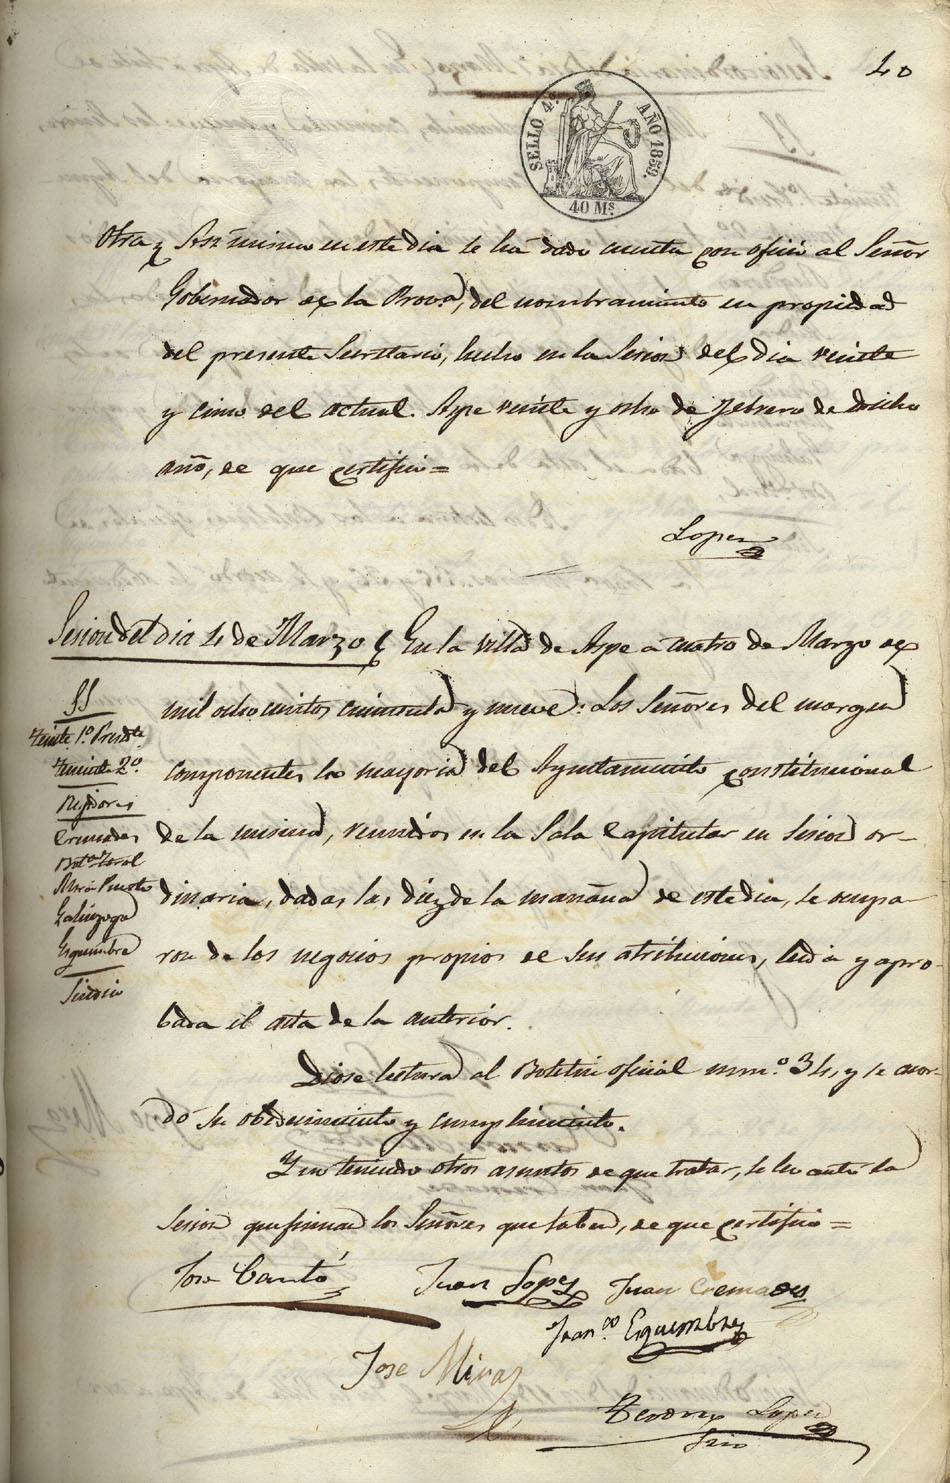 40
SELLO 4º. AÑO 1859.
40 Mˢ.
Otra y Asi mismo en este dia se ha dado cuenta con oficio al Señor
Gobernador de la Provª, del nombramiento en propiedad
del presente Secretario, hecho en la Sesion del dia veinte
y cinco del actual. Aspe veinte y ocho de Febrero de dicho
año, de que certifico=
Lopez
Sesion del dia 4 de Marzo En la villa de Aspe a cuatro de Marzo de
mil ochocientos cincuenta y nueve: Los Señores del margen
componentes la mayoria del Ayuntamiento constitucional
de la misma, reunidos en la Sala Capitular en Sesion or-
dinaria, dadas las diez de la mañana de este dia, se ocupa-
ron de los negocios propios de sus atribuciones, leida y apro-
bada el acta de la anterior.
SS
Teniente 1º Presdte.
Teniente 2º.
Regidores
Cremades
Mira Puerto
Galinzoga
Esquembre
Sindico
Diose lectura al Boletin oficial num.º 34, y se acor-
dó su obedecimiento y cumplimiento.
Y no teniendo otros asuntos de que tratar, se levantó la
Sesion que firman los Señores que saben, de que certifico=
Jose Cantó
Juan Lopez
Juan Cremades
Franᶜᵒ Esquembre
Jose Miraz
Lopez
Srio